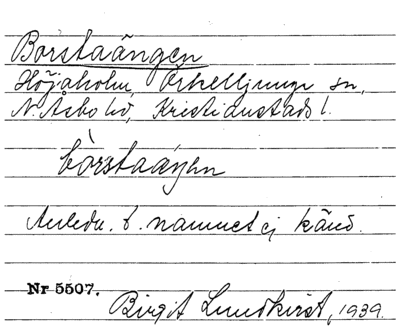 Borstaängen
Höjaholm, Örkelljunga sn,
N. Åsbo hd, Kristianstads l.
bòrstaáŋen
Anledn. t. namnet ej känd.
Nr 5507.
Birgit Lundkvist, 1939.